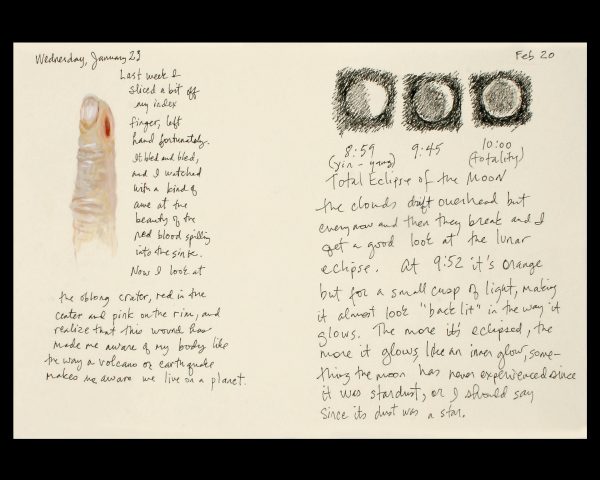 Wednesday, January 23
Last week I
sliced a bit off
my index
finger, left
hand fortunately.
It bled and bled,
and I watched
with a kind of
awe at the
beauty of the
red blood spilling
into the sink.
Now I look at
the oblong crater, red in the
center and pink on the rim, and
realize that this wound has
made me aware of my body like
the way a volcano or earthquake
makes me aware we live on a planet.
Feb 20
8:59 9:45 10:00
(yin-yang) (totality)
Total Eclipse of the Moon
the clouds drift overhead but
every now and then they break and I
get a good look at the lunar
eclipse. At 9:52 it's orange
but for a small cusp of light, making
it almost look "back lit" in the way it
glows. The more it's eclipsed, the
more it glows like an inner glow, some-
thing the moon has never experienced since
it was stardust, or I should say
since its dust was a star.